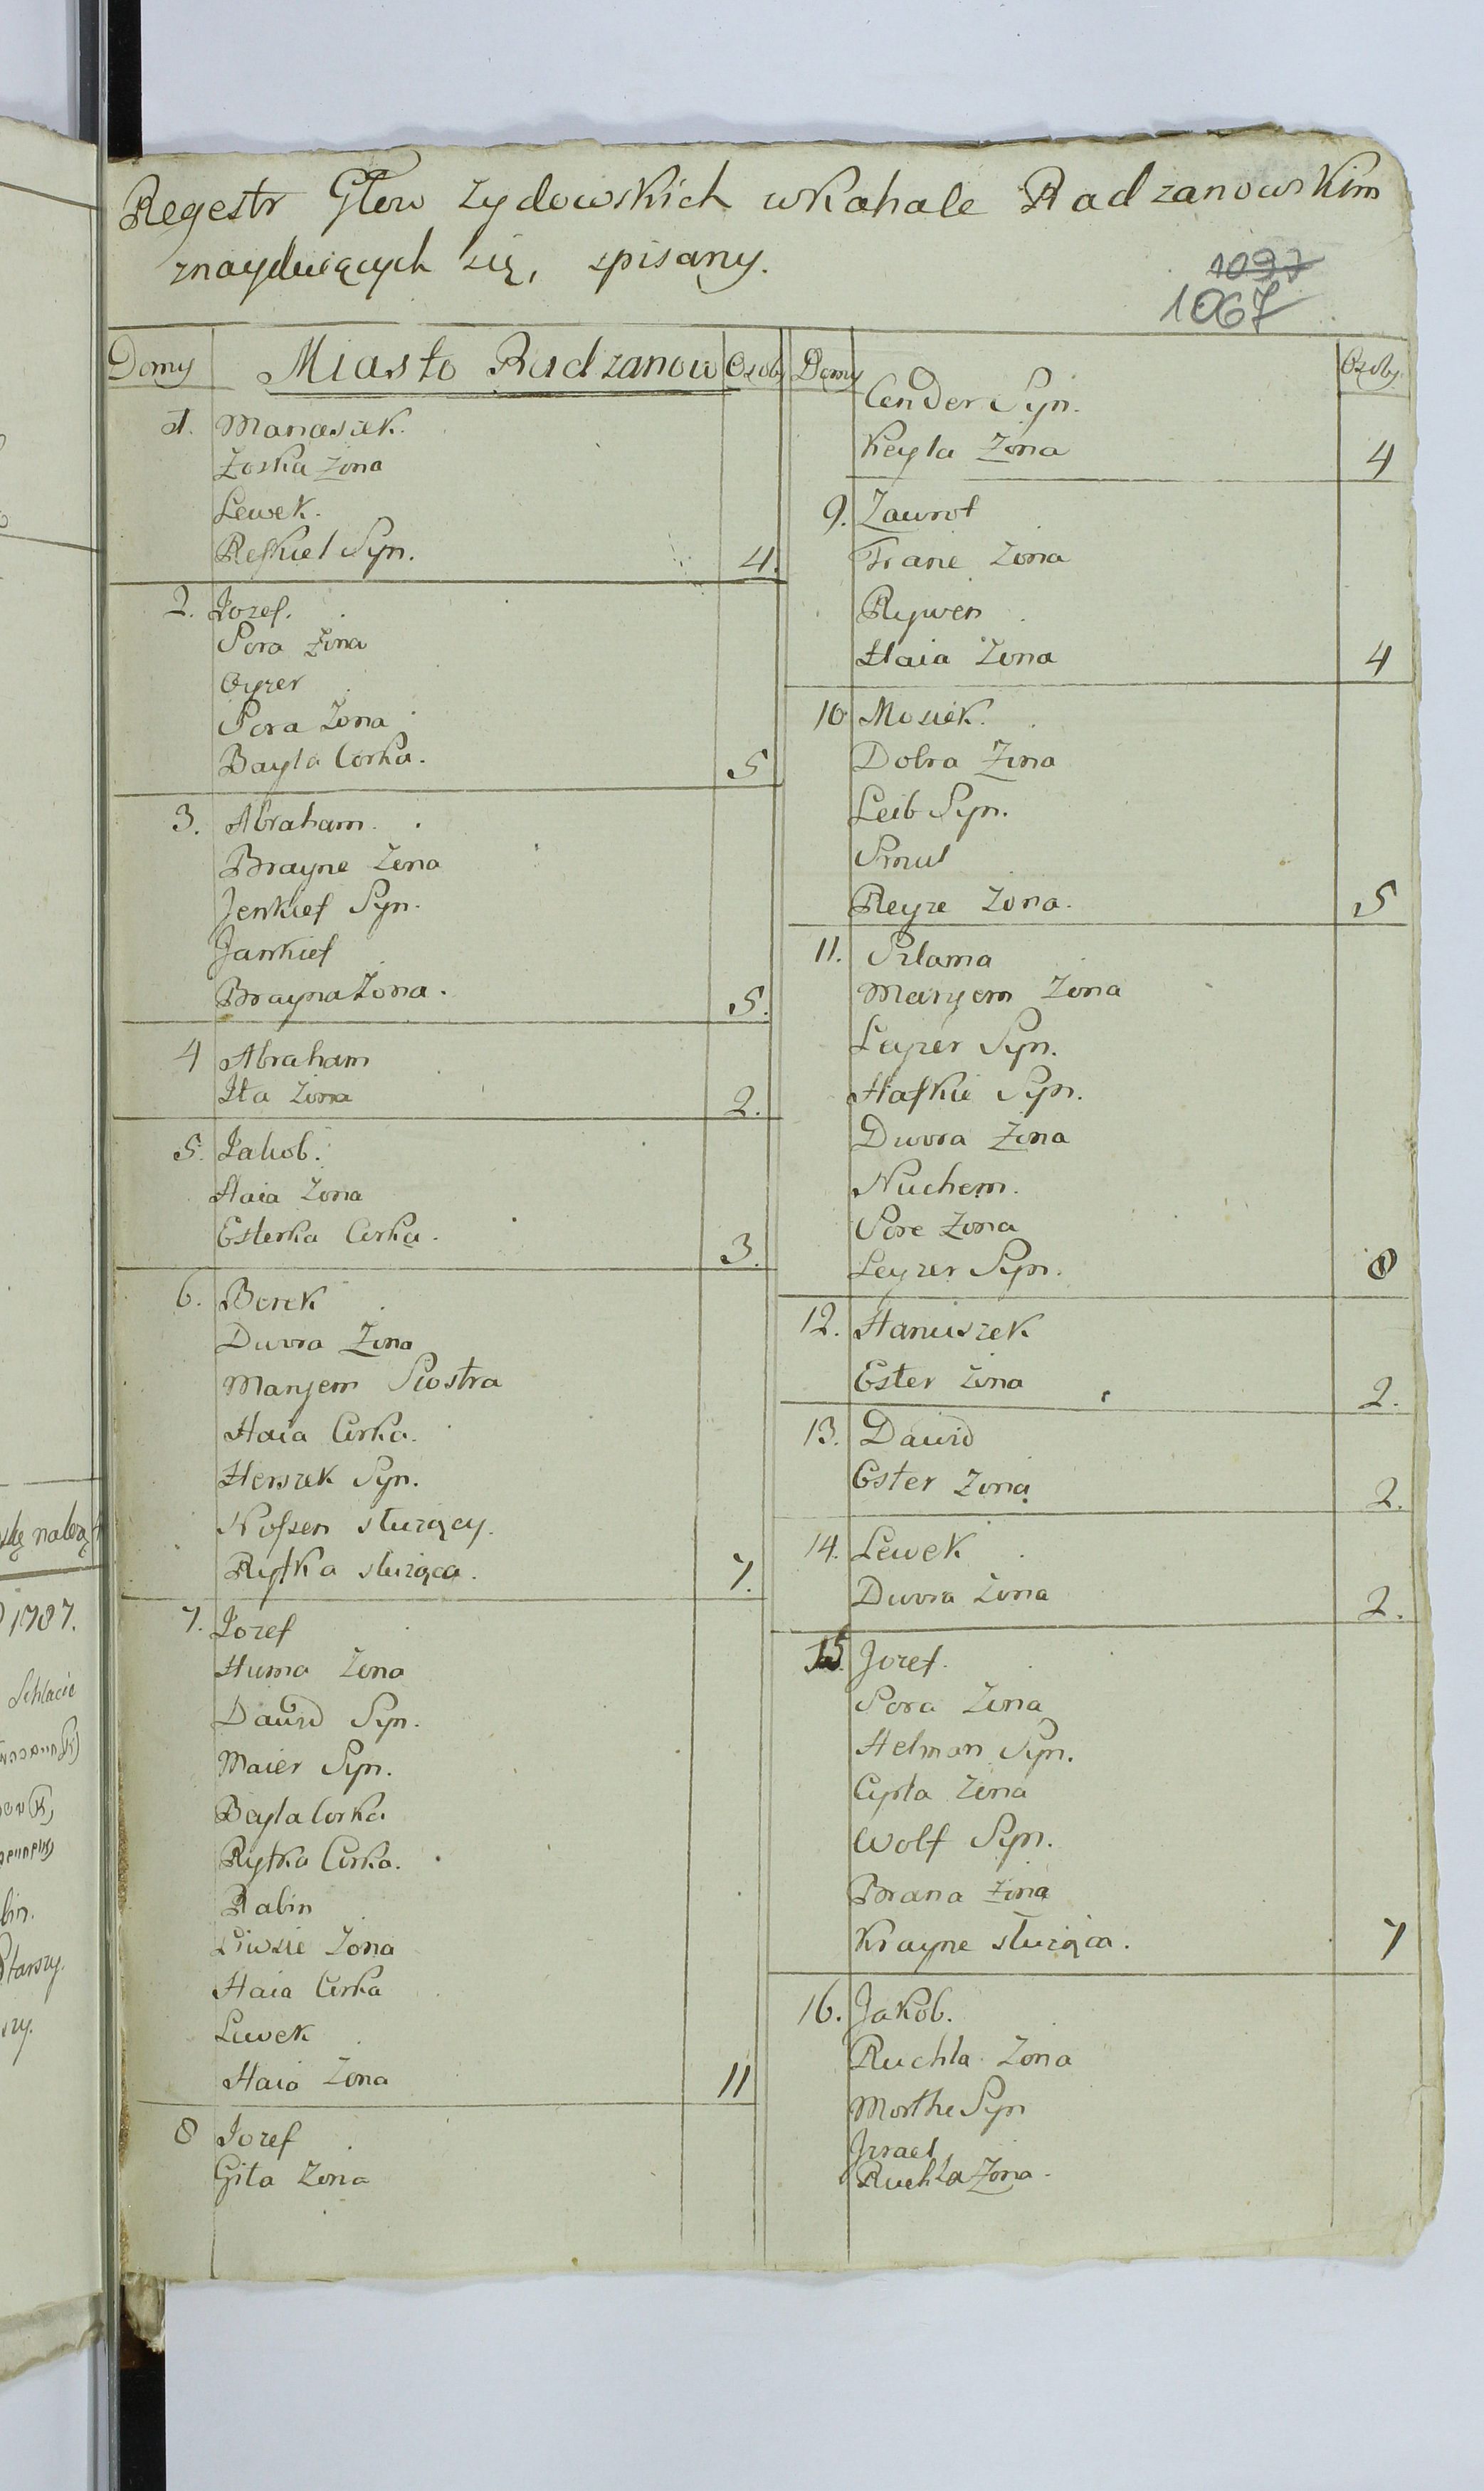 Regestr Głow żydowskich w Kahale Radzanowskim
znayduiących się, spisany.
1097
1067
Domy Miasto Radzanow Osoby
1. Manasiek.
Zoska Żona
Lewek.
Syn. 4.
2. Jozef.
Sora Żona
Oyzer
Sora Żona
Bayla Corka. 5
3. Abraham.
Brayne Żona
Jenkief Syn.
Jankief
Brayna Żona. 5.
4 Abraham
Ita Żona 2.
5. Jakob.
Haia Żona
Esterka Corka. 3.
6. Berek
Dwora Żona
Maryem Siostra
Haia Corka.
Herszek Syn.
Nossen służący.
Ryfka służąca. 7.
7. Jozef
Huma Żona
Dawid Syn.
Maier Syn.
Bayla Corka
Ryfka Corka.
Rabin
Liwsie Żona
Haia Corka
Lewek
Haia Żona 11
8 Jozef
Gita Żona
Domy Osoby.
Cender Syn.
Keyla Żona 4
9. Zawrot
Frane Żona
Rywen
Haia Żona 4
10 Mosiek.
Dobra Żona
Leib Syn.
Smul
Reyze Żona. 5
11. Szlama
Maryem Żona
Leyzer Syn.
Haskie Syn.
Dwora Żona
Nuchem.
Sore Żona
Leyzer Syn. 8
12. Haniuszek
Ester Żona 2.
13. Dawid
Ester Żona 2.
14. Lewek
Dwora Żona 2.
15. Jozef.
Sora Żona
Helman Syn.
Cypla Żona
Wolf Syn.
Brana Żona
Krayne służąca. 7
16. Jakob.
Ruchla Żona
Morthe Syn
Izrael
Ruchla Żona.
1787.